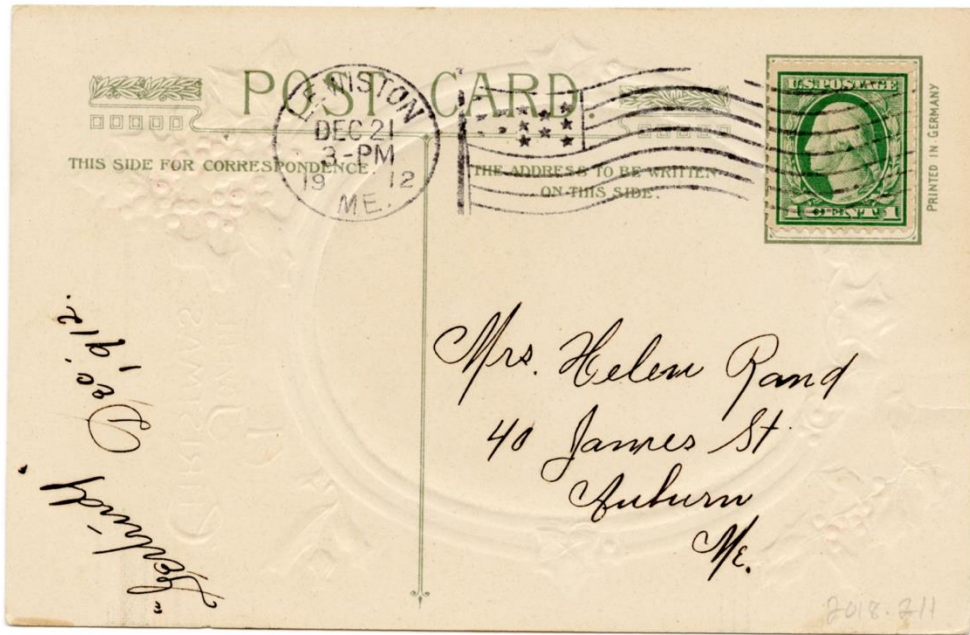 POST CARD.
LEWISTON
DEC 21
3-PM
19 12
ME.
THIS SIDE FOR CORRESPONDENCE.
THE ADDRESS TO BE WRITTEN
ON THIS SIDE.
U.S. POSTAGE
1 CENT 1
PRINTED IN GERMANY
Dec
1912.
Mrs. Helen Rand
40 James St
Auburn
Me.
2018.211